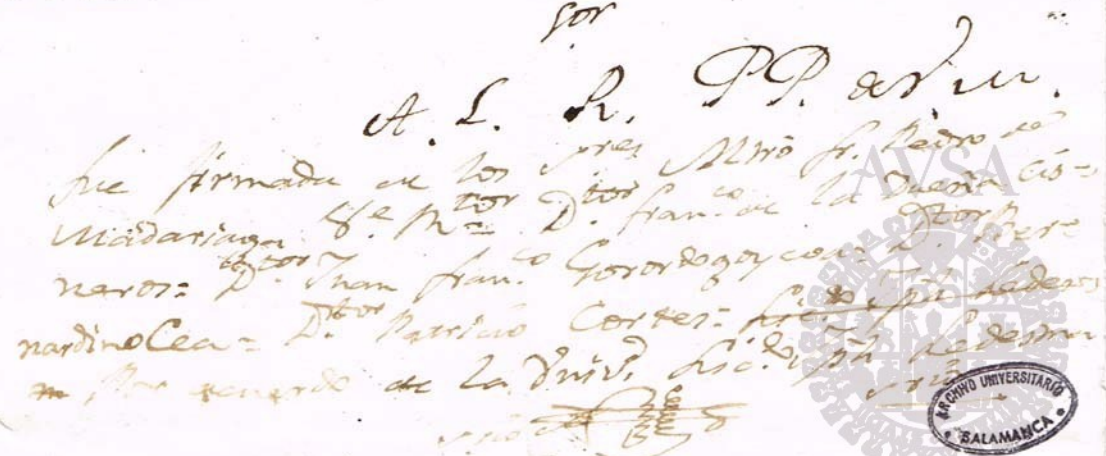 Sor
A. L. R. PP. de V. M.
fue firmada de los Sres Mtro fr. Pedro de
Madariaga Rr.= Dtor D. franco de la Dueña Cis=
neros= Dtor Juan franco Gorordogoycoa= Dtor Ber=
nardino Cea= Dtor Patricio Cortes=
Por acuerdo de la Univd. Licdo Jph Ledesma
srio
AVSA
ARCHIVO UNIVERSITARIO
SALAMANCA